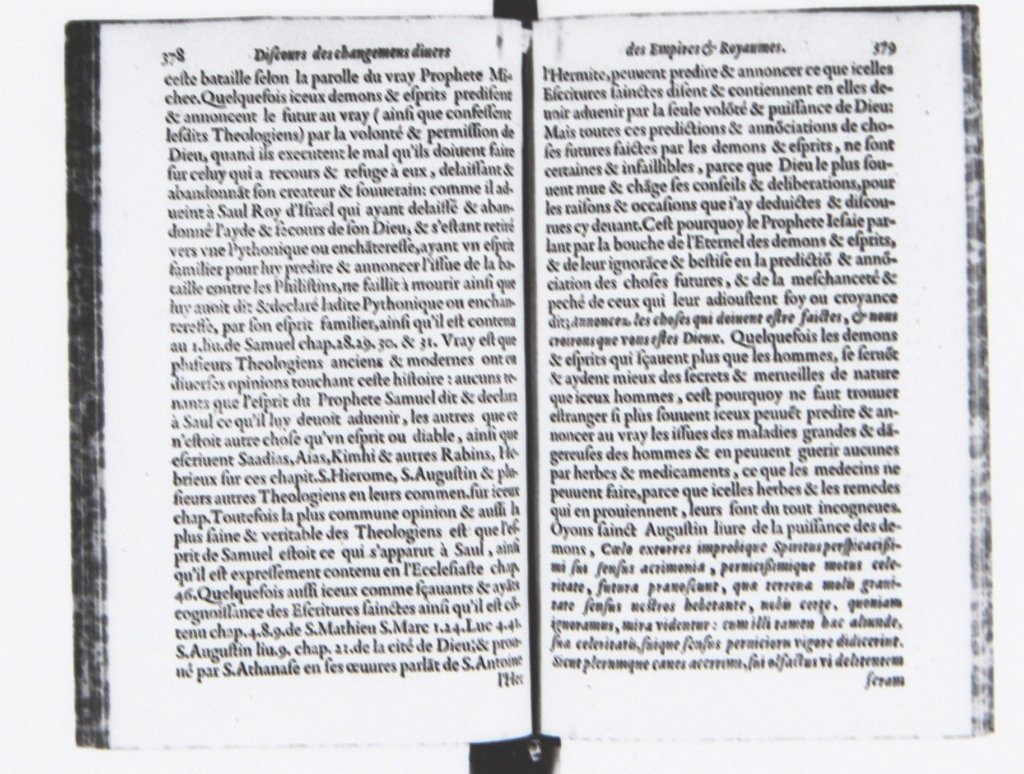 378 Diſcours des changemens diuers
ceſte bataille ſelon la parolle du vray Prophete Mi-
chee.Quelquefois iceux demons & eſprits prediſent
& annoncent le futur au vray ( ainſi que confeſſent
leſdits Theologiens) par la volonté & permiſſion de
Dieu, quand ils executent le mal qu'ils doiuent faire
ſur celuy qui a recours & refuge à eux , delaiſſant &
abandonnāt ſon createur & ſouuerain: comme il ad-
ueint à Saul Roy d'Iſrael qui ayant delaiſſé & aban-
donné l'ayde & ſecours de ſon Dieu, & s'eſtant retiré
vers vne Pythonique ou enchātereſſe,ayant vn eſprit
familier pour luy predire & annoncer l'iſſue de la ba-
taille contre les Philiſtins,ne faillit à mourir ainſi que
luy auoit dit & declaré ladite Pythonique ou enchan-
tereſſe, par ſon eſprit familier,ainſi qu'il eſt contenu
au 1.liu.de Samuel chap.28.29.30. & 31. Vray eſt que
pluſieurs Theologiens anciens & modernes ont eu
diuerſes opinions touchant ceſte hiſtoire : aucuns te-
nants que l'eſprit du Prophete Samuel dit & declara
à Saul ce qu'il luy deuoit aduenir, les autres que ce
n'eſtoit autre choſe qu'vn eſprit ou diable , ainſi que
eſcriuent Saadias,Aias,Kimhi & autres Rabins, He-
brieux ſur ces chapit.S.Hierome, S.Auguſtin & plu-
ſieurs autres Theologiens en leurs commen.ſur iceux
chap.Toutefois la plus commune opinion & auſſi la
plus ſaine & veritable des Theologiens eſt que l'eſ-
prit de Samuel eſtoit ce qui s'apparut à Saul , ainſi
qu'il eſt expreſſement contenu en l'Eccleſiaſte chap
46.Quelquefois auſſi iceux comme ſçauants & ayās
cognoiſſance des Eſcritures ſainctes ainſi qu'il eſt cō-
tenu chap.4.8.9.de S.Mathieu S.Marc 1.24.Luc 4.41.
S.Auguſtin liu.9. chap. 21.de la cité de Dieu;& prou-
né par S.Athanaſe en ſes œuures parlāt de S.Antoine
l'Her
des Empires & Royaumes. 379
l'Hermite,peuuent predire & annoncer ce que icelles
Eſcritures ſainctes diſent & contiennent en elles de-
uoir aduenir par la ſeule volōté & puiſſance de Dieu:
Mais toutes ces predictions & annōciations de cho-
ſes futures faictes par les demons & eſprits, ne ſont
certaines & infaillibles , parce que Dieu le plus ſou-
uent mue & chāge ſes conſeils & deliberations,pour
les raiſons & occaſions que i'ay deduictes & diſcou-
rues cy deuant.Ceſt pourquoy le Prophete Ieſaie par-
lant par la bouche de l'Eternel des demons & eſprits,
& de leur ignorāce & beſtiſe en la predictiō & annō-
ciation des choſes futures , & de la meſchanceté &
peché de ceux qui leur adiouſtent foy ou croyance
dit;Annoncez les choſes qui doiuent eſtre faictes, & nous
croirons que vous eſtes Dieux. Quelquefois les demons
& eſprits qui ſçauent plus que les hommes, ſe ſeruēt
& aydent mieux des ſecrets & merueilles de nature
que iceux hommes , ceſt pourquoy ne faut trouuer
eſtranger ſi plus ſouuent iceux peuuēt predire & an-
noncer au vray les iſſues des maladies grandes & dā-
gereuſes des hommes & en peuuent guerir aucunes
par herbes & medicaments , ce que les medecins ne
peuuent faire,parce que icelles herbes & les remedes
qui en prouiennent , leurs ſont du tout incogneues.
Oyons ſainct Auguſtin liure de la puiſſance des de-
mons , Cœlo extorres improbique Spiritus perſpicaciſſi-
mi ſui ſenſus acrimonia , pernicißimique motus cele-
ritate, futura prænoſcunt, qua terrena molis graui-
tate ſenſus noſtros hebetante, nobis certe, quoniam
ignoramus, mira videntur : cum illi tamen hac abunde,
ſua celeritatis,ſuique ſenſus perniciorū vigore didicerint.
Sicut plerumque canes acerrimo,ſui olfactus vi delitentem
feram